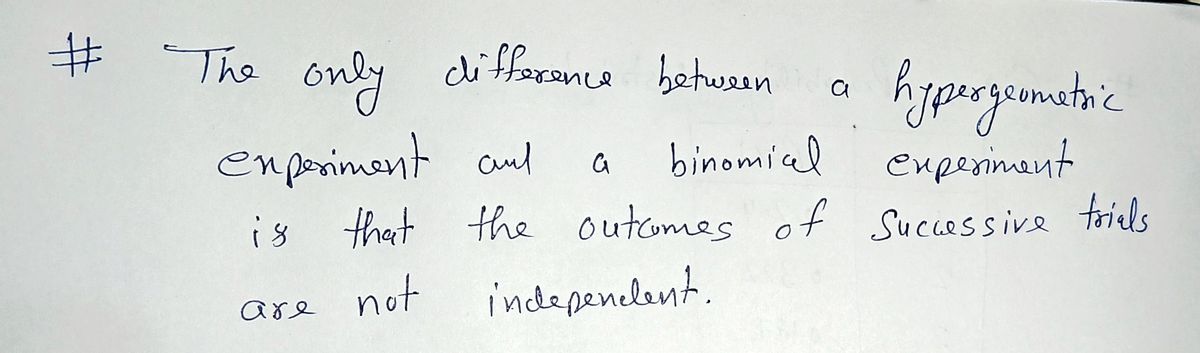 # The only difference between a hypergeometric
experiment and a binomial experiment
is that the outcomes of successive trials
are not independent.